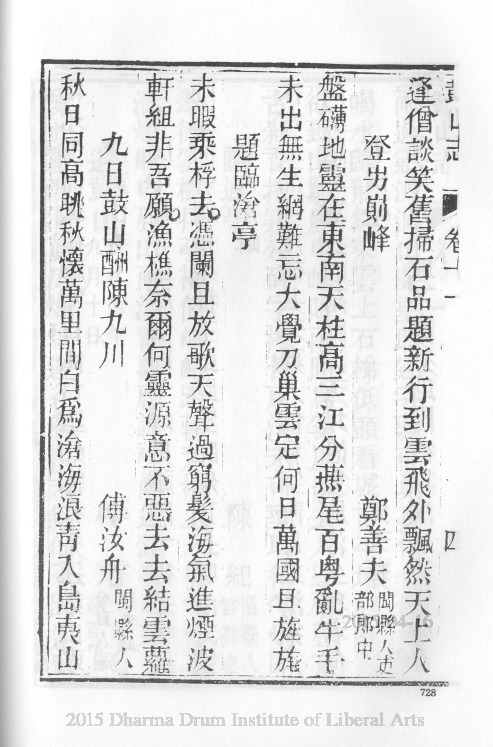 鼓山志 卷十一 四
逢僧談笑舊掃石品題新行到雲飛外飄然天上人
登屴崱峰 鄭善夫 閩縣人吏部郎中
盤礴地靈在東南天柱高三江分燕尾百粤亂牛毛
未出無生網難忘大覺刀巢雲定何日萬國且旌旄
題臨滄亭
未暇乘桴去憑闌且放歌天聲過窮髮海氣進煙波
軒組非吾願漁樵奈爾何靈源意不惡去去結雲蘿
九日鼓山酬陳九川 傅汝舟 閩縣人
秋日同高眺秋懷萬里間白為滄海浪靑入島夷山
728
2015 Dharma Drum Institute of Liberal Arts